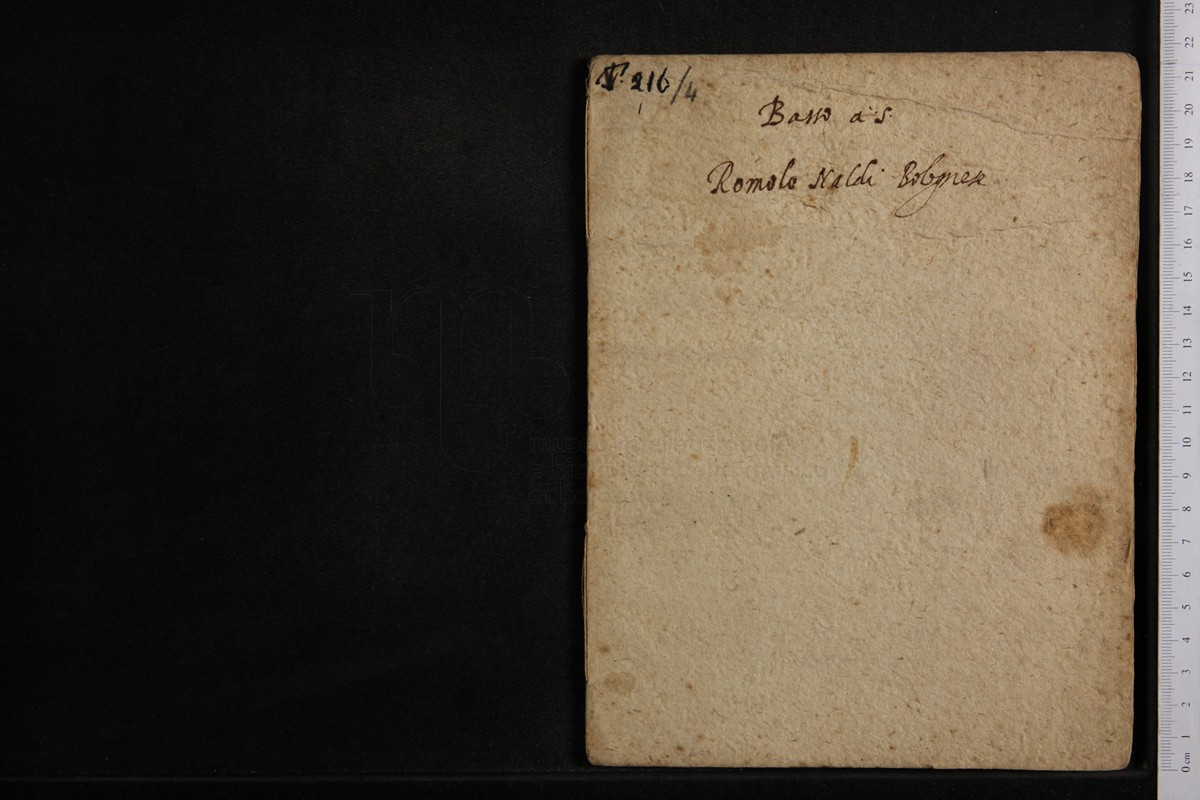 V. 216/4
Basso a 5.
Romolo Naldi Bolognese
23
22
21
20
19
18
17
16
15
14
13
12
11
10
9
8
7
6
5
4
3
2
1
0 cm